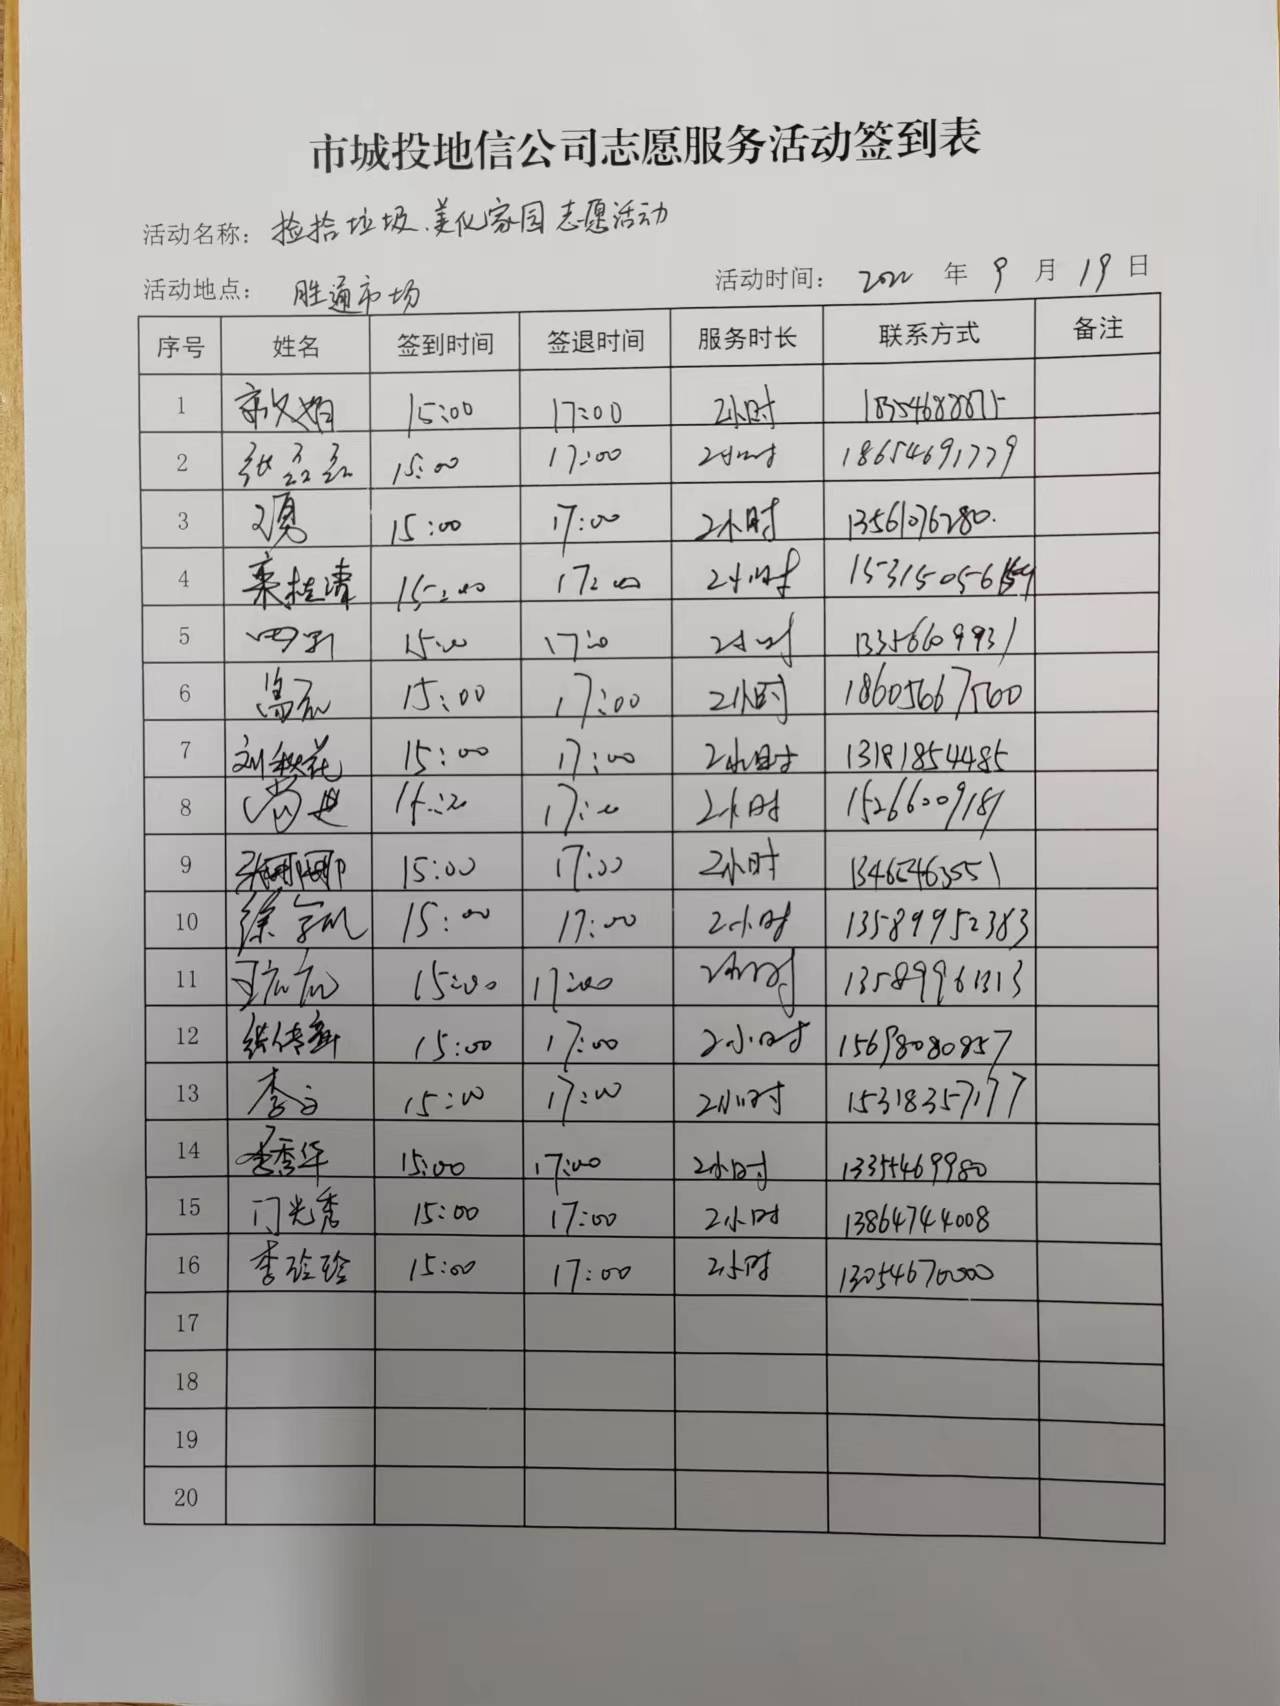 市城投地信公司志愿服务活动签到表
活动名称：捡拾垃圾、美化家园志愿活动
活动地点：胜通市场 活动时间：2022 年 9 月 19 日
序号 姓名 签到时间 签退时间 服务时长 联系方式 备注
1 15:00 17:00 2小时
2 张磊磊 15:00 17:00 2小时 18654691779
3 15:00 17:00 2小时 13561076280.
4 栾桂清 15:00 17:00 2小时
5 15:00 17:00 2小时 13356609931
6 15:00 17:00 2小时 18605667500
7 15:00 17:00 2小时 13181854485
8 15:00 17:00 2小时 15266009181
9 张娜娜 15:00 17:00 2小时 13465463551
10 15:00 17:00 2小时 13589952383
11 15:00 17:00 2小时 13589961313
12 15:00 17:00 2小时 15698080857
13 15:00 17:00 2小时 15318357177
14 李秀华 15:00 17:00 2小时 13355469980
15 门光秀 15:00 17:00 2小时 13864744008
16 李玲玲 15:00 17:00 2小时 13054670000
17
18
19
20